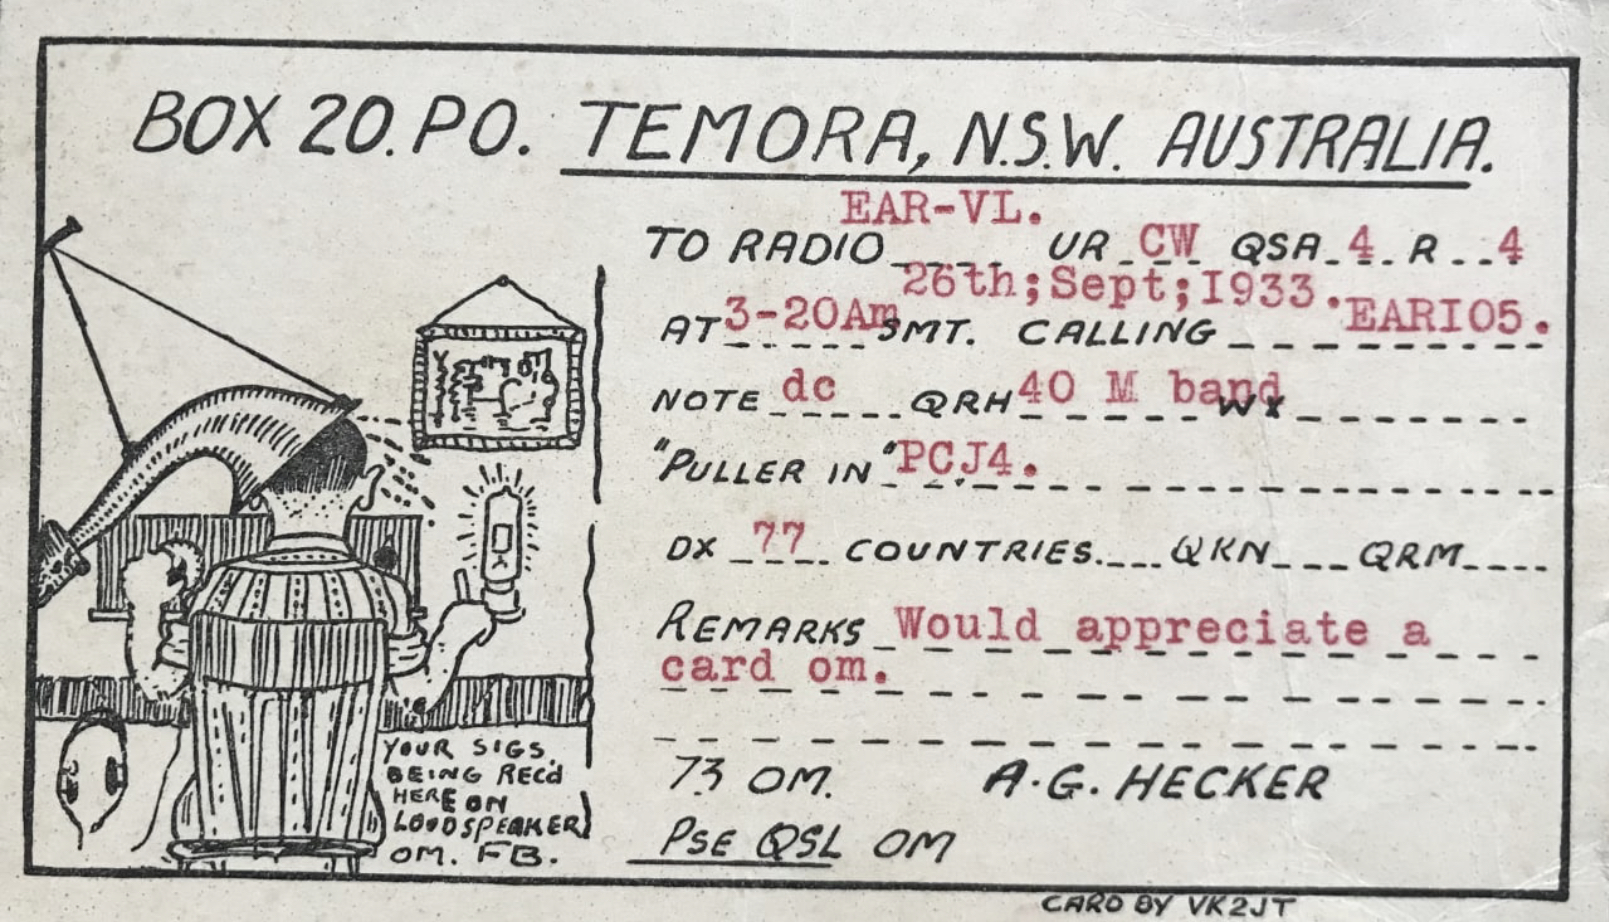 BOX 20. PO. TEMORA, N.S.W. AUSTRALIA.
EAR-VL.
TO RADIO UR CW QSA 4 R 4
26th;Sept;I933.
AT 3-20Am SMT. CALLING EARI05.
NOTE dc QRH 40 M band WX
"PULLER IN" PCJ4.
DX 77 COUNTRIES. QKN QRM
REMARKS Would appreciate a
card om.
73 OM. A.G. HECKER
PSE QSL OM
YOUR SIGS.
BEING REC'd
HERE ON
LOUDSPEAKER
OM. FB.
CARD BY VK2JT